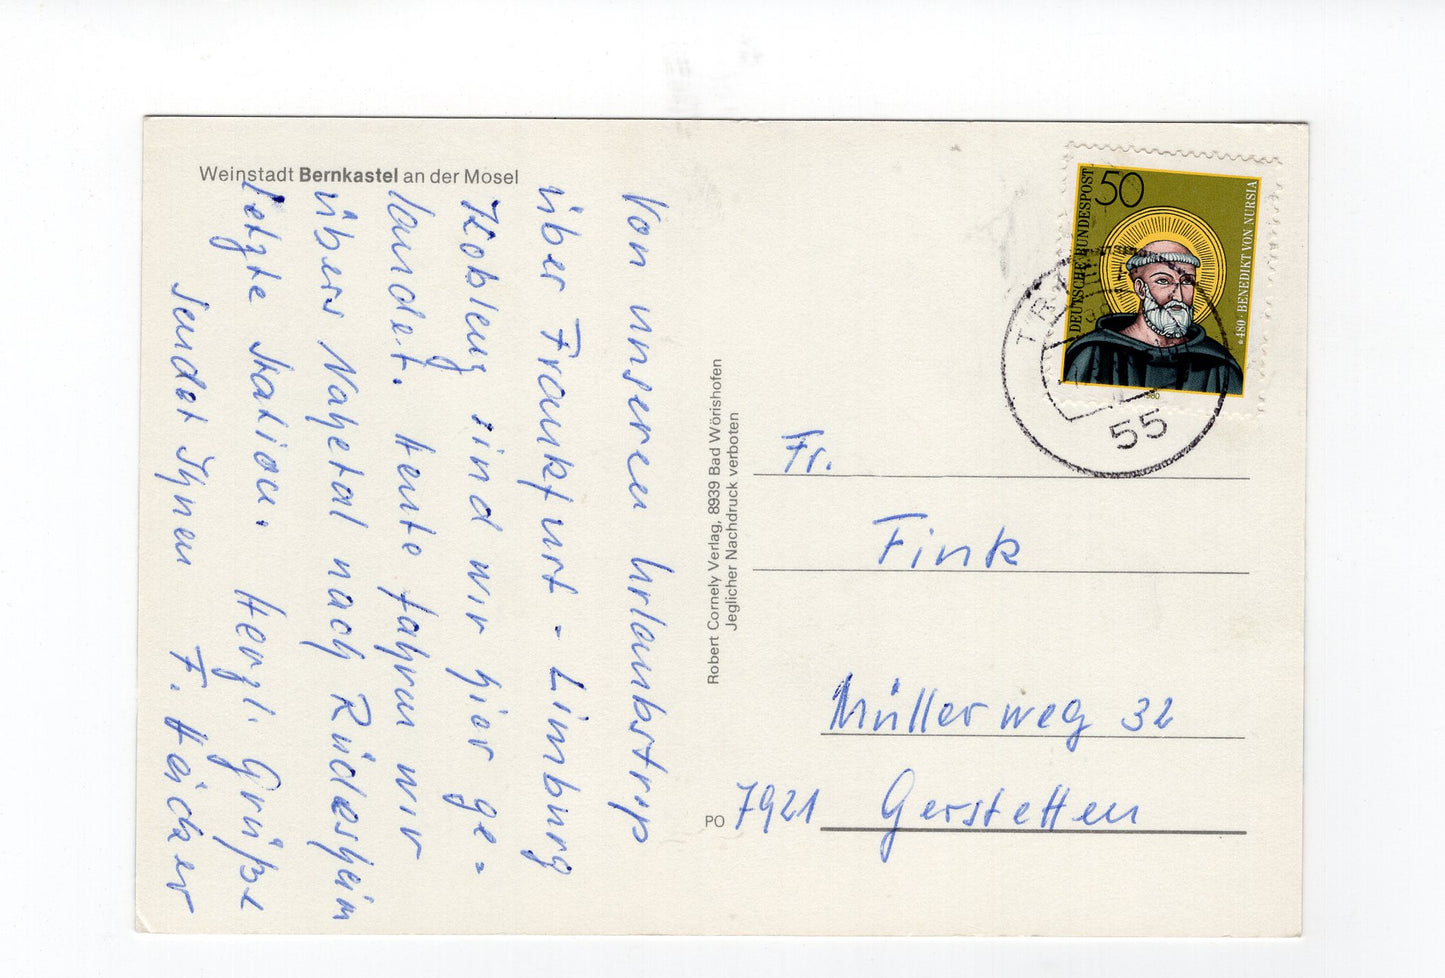 Weinstadt Bernkastel an der Mosel
Von unseren Urlaubstrip
über Frankfurt - Limburg
Koblenz sind wir hier ge-
landet. Heute fahren wir
übers Nahetal nach Rüdesheim
letzte Station. Herzl. Grüße
sendet Ihnen F.
Robert Cornely Verlag, 8939 Bad Wörishofen
Jeglicher Nachdruck verboten
DEUTSCHE BUNDESPOST
50
*480 · BENEDIKT VON NURSIA
1980
55
Fr.
Fink
Müllerweg 32
PO 7921 Gerstetten